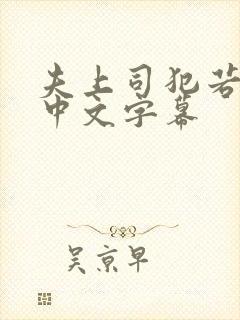 夫上司犯若
中文字幕
吴京早